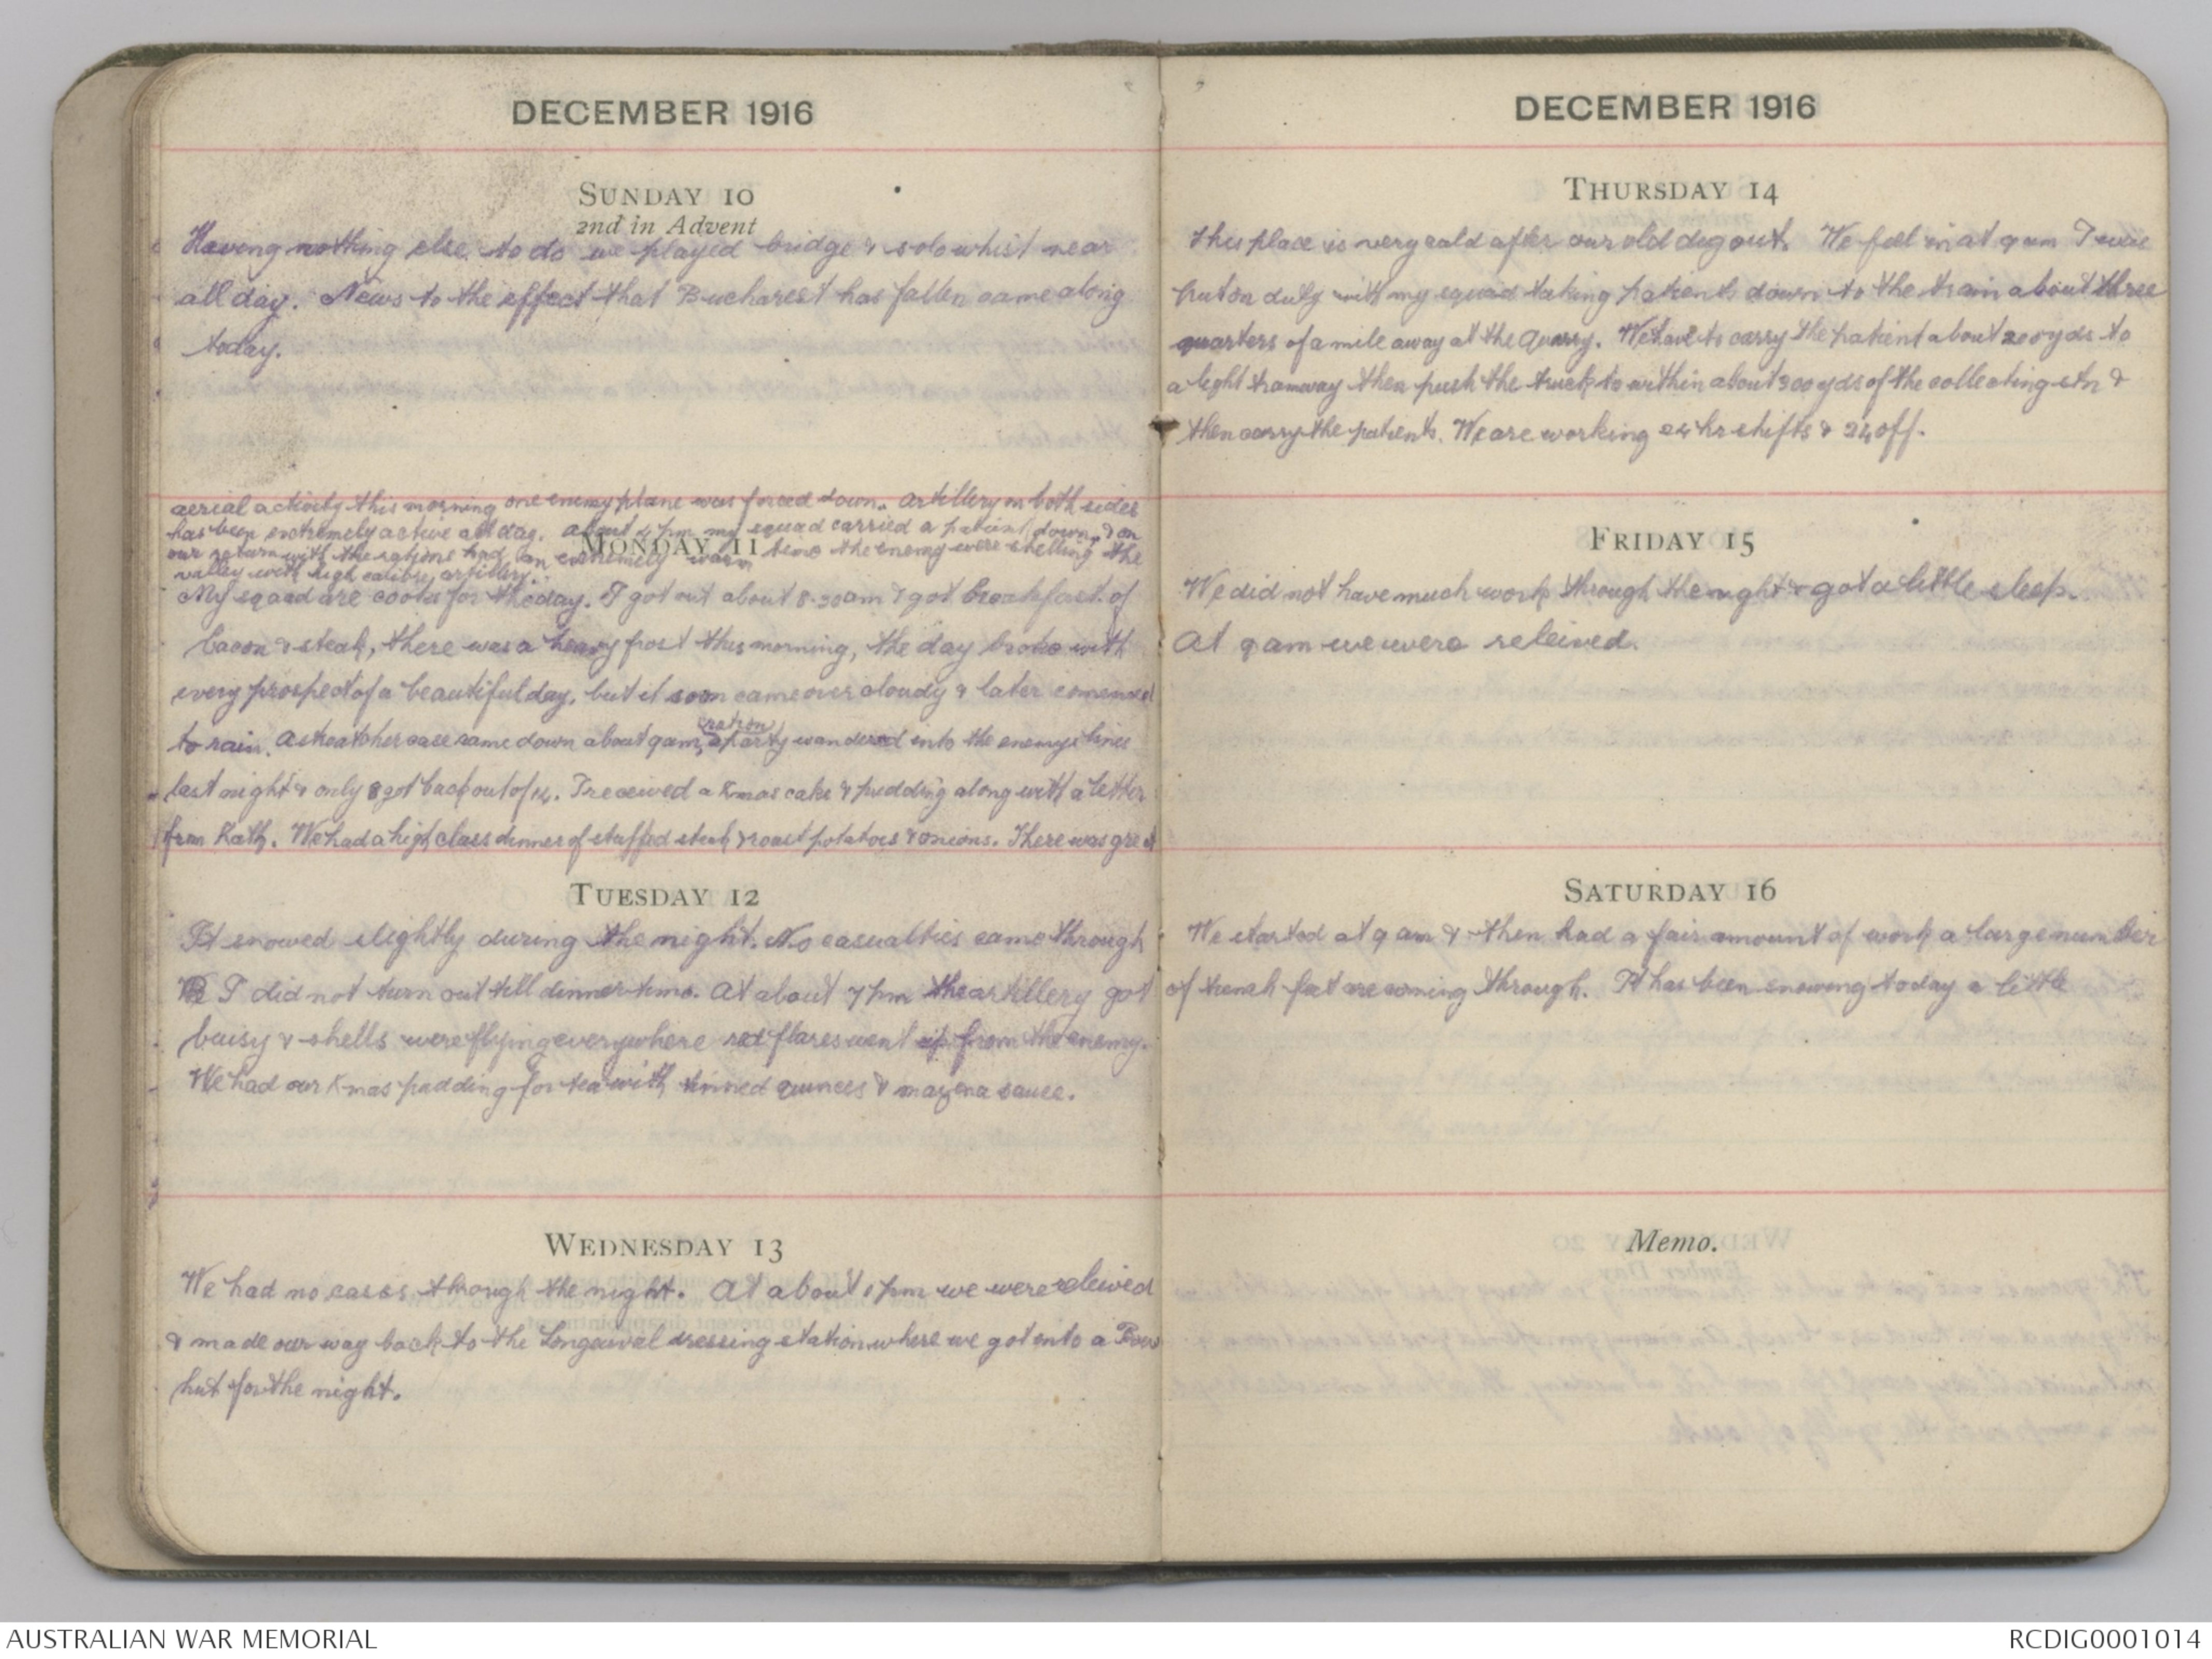 DECEMBER 1916
SUNDAY 10
2nd in Advent
Having nothing else to do we played bridge & solo whist near
all day. News to the effect that Bucharest has fallen came along
today.
aerial activity this morning one enemy plane was forced down. Artillery on both sides
has been extremely active all day. About 4 pm my squad carried a patient down, & on
our return with the rations had an extremely warm time the enemy were shelling the
valley with high calibre artillery.
MONDAY 11
My squad are cooks for the day. I got out about 8.30am & got breakfast of
bacon & steak, there was a heavy frost this morning, the day broke with
every prospect of a beautiful day, but it soon came over cloudy & later comenced
to rain. A stretcher case came down about 9am, a ration party wandered into the enemys lines
last night & only 8 got back out of 14. I received a Xmas cake & pudding along with a letter
from Kath. We had a high class dinner of stuffed steak & roast potatoes & onions. There was great
TUESDAY 12
It snowed slightly during the night. No casualties came through
I did not turn out till dinner time. At about 7 pm the artillery got
buisy & shells were flying everywhere red flares went up from the enemy.
We had our Xmas pudding for tea with tinned quinces & mazena sauce.
WEDNESDAY 13
We had no cases through the night. At about 1 pm we were releived
& made our way back to the Longueval dressing station where we got into a
hut for the night.
DECEMBER 1916
THURSDAY 14
This place is very cold after our old dugout. We fell in at 9 am I was
put on duty with my squad taking patients down to the train about three
quarters of a mile away at the Quarry. We have to carry the patient about 200 yds to
a light tramway then push the truck to within about 300 yds of the collecting stn &
then carry the patients. We are working 24 hr shifts & 24 off.
FRIDAY 15
We did not have much work through the night & got a little sleep.
At 9 am we were releived.
SATURDAY 16
We started at 9 am & then had a fair amount of work a large number
of trench feet are coming through. It has been snowing today a little
Memo.
AUSTRALIAN WAR MEMORIAL
RCDIG0001014